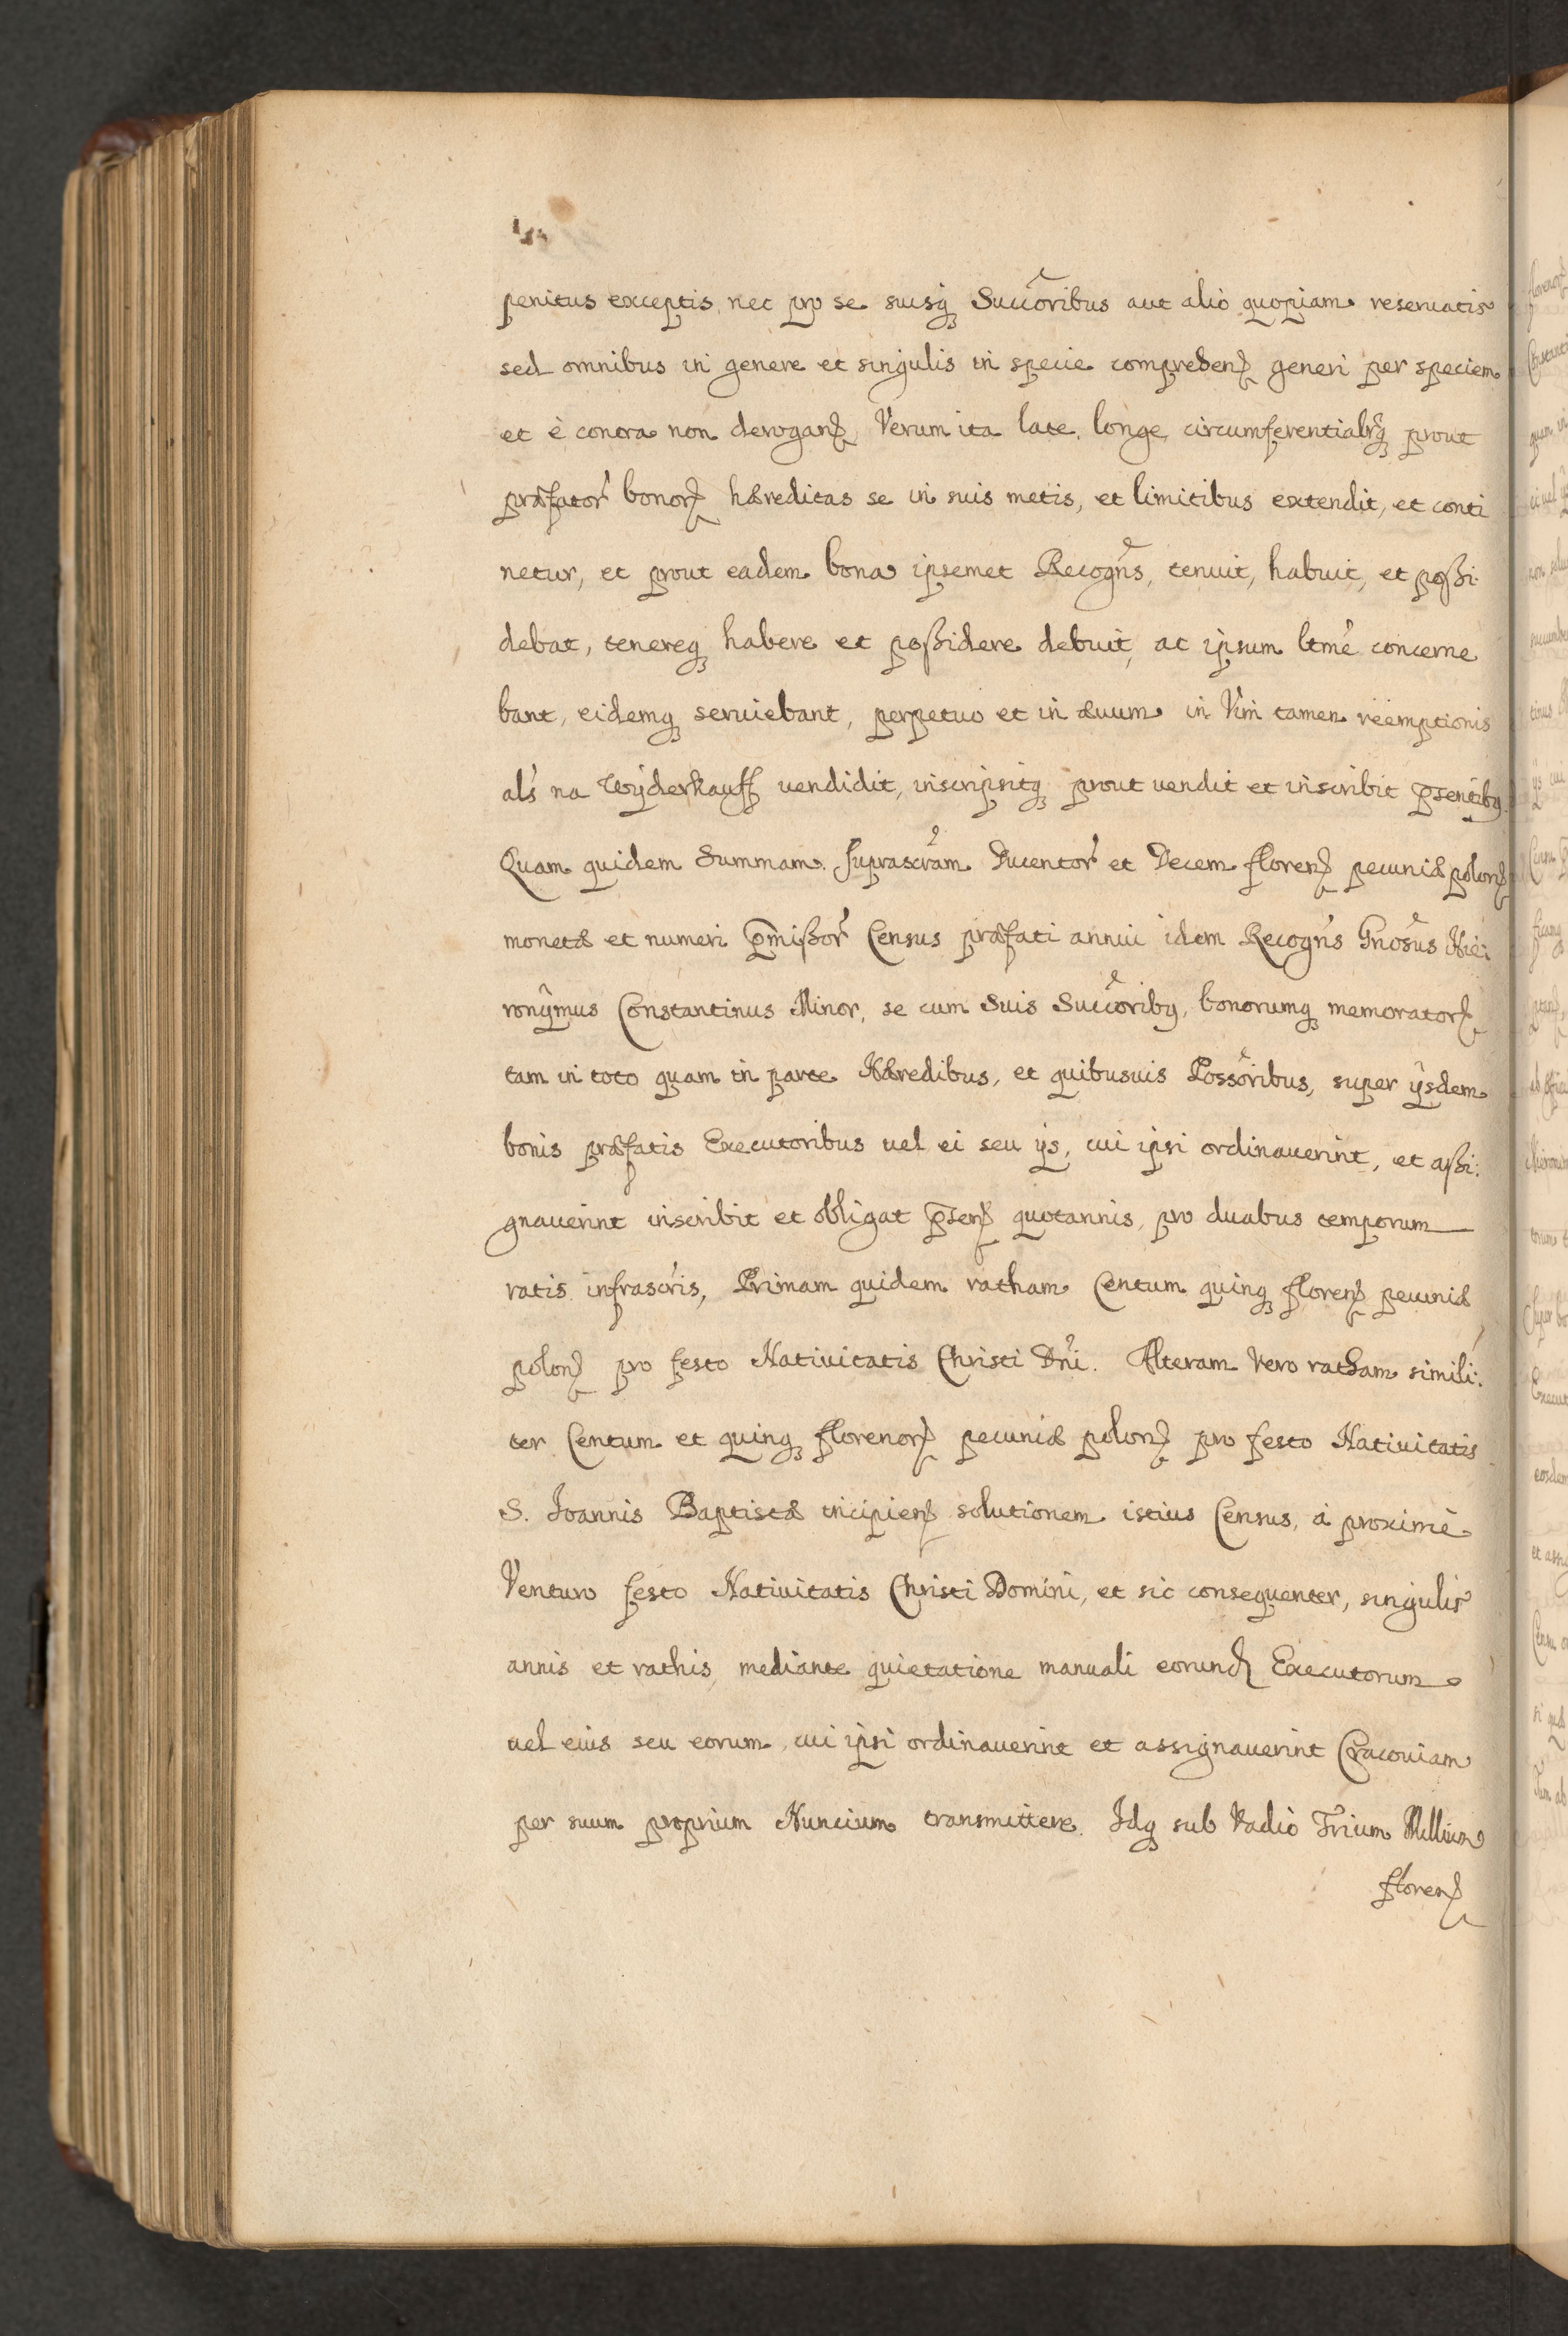 penitus exceptis, nec pro se suisq́ȝ Succõribus aut alio quopiam reseruatis
sed omnibus in genere et singulis in specie compreħenꝭ generi per speciem
et è contra non deroganꝭ, Verum ita late, longe, circumferentialr̃qȝ prout
præfator̃ bonorꝭ hæreditas se in suis metis, et limitibus extendit, et conti
netur, et prout eadem bona ipsemet Recogñs, tenuit, habuit, et poßi:
debat, tenereqȝ habere et poßidere debuit, ac ipsum ltmẽ concerne
bant, eidemqȝ seruiebant, perpetuo et in æuum in Vim tamen reemptionis
als̃ na Wyderkauff uendidit, inscripsitqȝ prout uendit et inscribit p̃sentibꝰ.
Quam quidem Summam suprascr̃am Ducentor̃ et Decem florenꝭ pecuniæ polonꝭ
monetæ et numeri p̃mißor̃ Census præfati annui idem Recogñs Gnõsus Hie:
ronymus Constantinus Minor, se cum suis Succõribꝰ, bonorumqȝ memoratorꝭ
tam in toto quam in parte Hæredibus, et quibusuis Possõribus, super ijsdem
bonis præfatis Executoribus uel ei seu ijs, cui ipsi ordinauerint, et aßi:
gnauerint inscribit et obligat p̃senꝭ quotannis, pro duabus temporum
ratis infrascr̃is, Primam quidem ratham Centum quinqȝ florenꝭ pecuniæ
polonꝭ pro festo Natiuitatis Christi Dñi. Alteram Vero ratham simili:
ter Centum et quinqȝ florenorꝭ pecuniæ polonꝭ pro festo Natiuitatis
S. Joannis Baptistæ incipienꝭ solutionem istius Census, à proximè
Venturo festo Natiuitatis Christi Domini, et sic consequenter, singulis
annis et rathis, mediante quietatione manuali eorundꝭ Executorum
uel eius seu eorum, cui ipsi ordinauerint et assignauerint Cracouiam
per suum proprium Nuncium transmittere. Idqȝ sub Vadio Trium Millium
florenꝭ